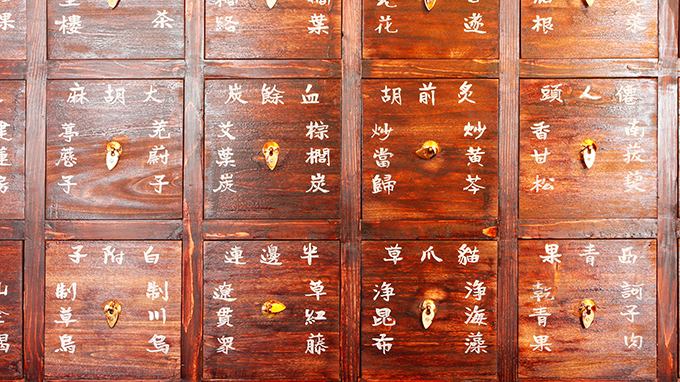 根
遂
花
葉
絡
茶
樓
僊人頭
南菝葜
香甘松
炙前胡
炒黄芩
炒當歸
血餘炭
棕櫚炭
艾葉炭
太胡麻
茺蔚子
葶藶子
西青果
訶子肉
乾青果
貓爪草
淨海藻
淨昆布
半邊連
草紅藤
遼貫眾
白附子
制川烏
制草烏